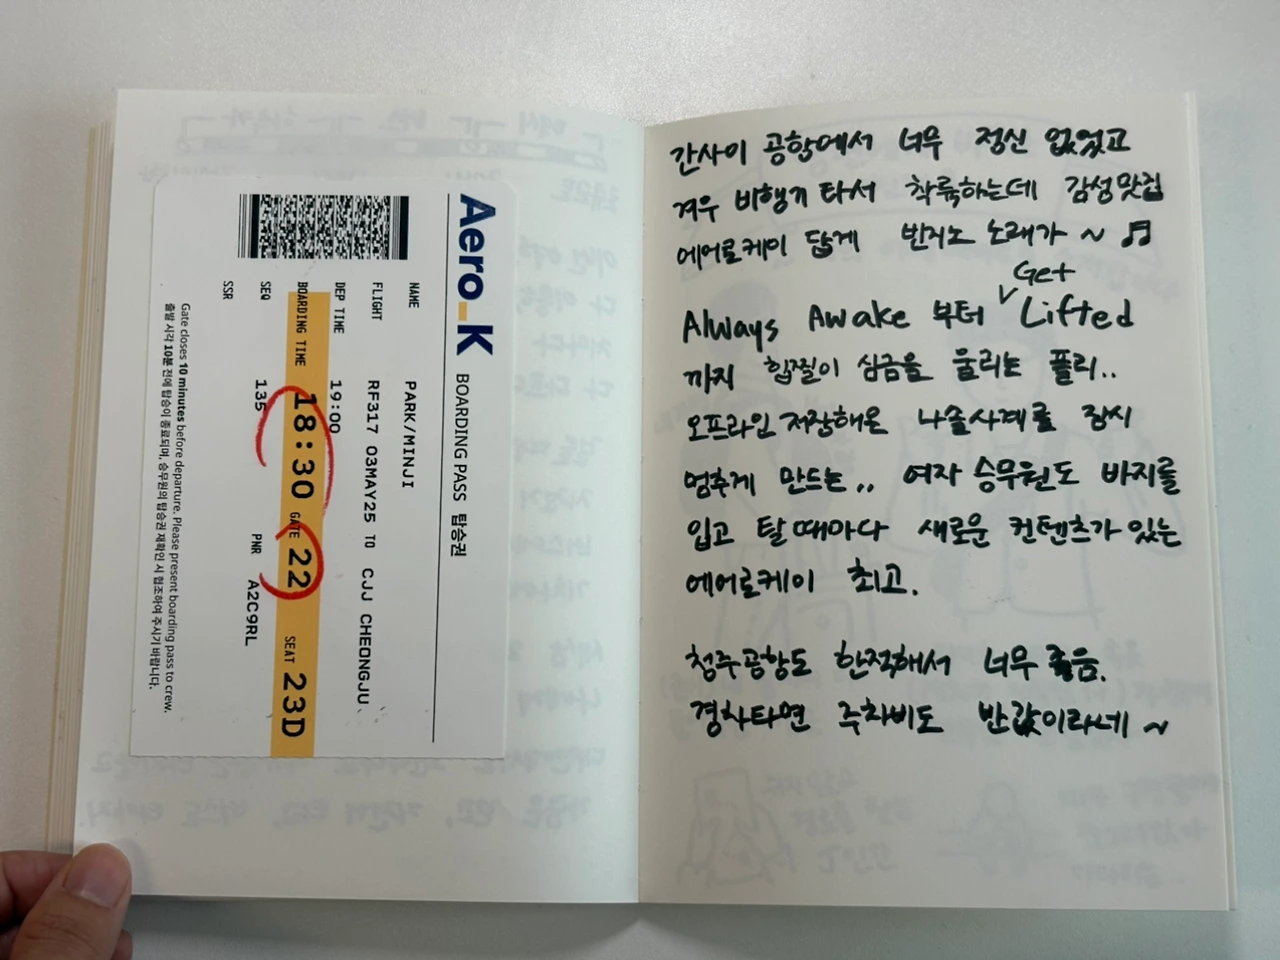 Aero_K BOARDING PASS 탑승권
NAME PARK/MINJI
FLIGHT RF317 03MAY25 TO CJJ CHEONGJU
DEP TIME 19:00
BOARDING TIME 18:30 GATE 22 SEAT 23D
SEQ 135 PNR A2C9RL
SSR
Gate closes 10 minutes before departure. Please present boarding pass to crew.
출발 시각 10분 전에 탑승이 종료되며, 승무원의 탑승권 재확인 시 협조하여 주시기 바랍니다.
간사이 공항에서 너무 정신 없었고
겨우 비행기 타서 착륙하는데 감성맛집
에어로케이 답게 반지노 노래가 ~ ♬
Always Awake 부터 Get Lifted
까지 힙찔이 심금을 울리는 플리..
오프라인 저장해온 나솔사계를 잠시
멈추게 만드는.. 여자 승무원도 바지를
입고 탈 때마다 새로운 컨텐츠가 있는
에어로케이 최고.
청주공항도 한적해서 너무 좋음.
경차타면 주차비도 반값이라네 ~